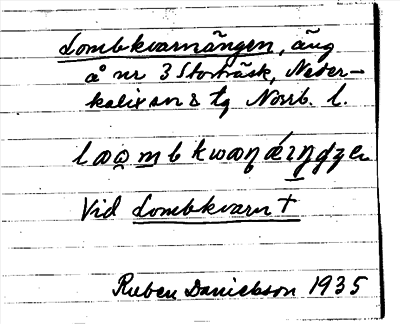 Lombkvarnängen, äng
å nr 3 Storträsk, Neder-
kalix sn & tg Norrb. l.
Vid Lombkvarn +
Ruben Danielsson 1935